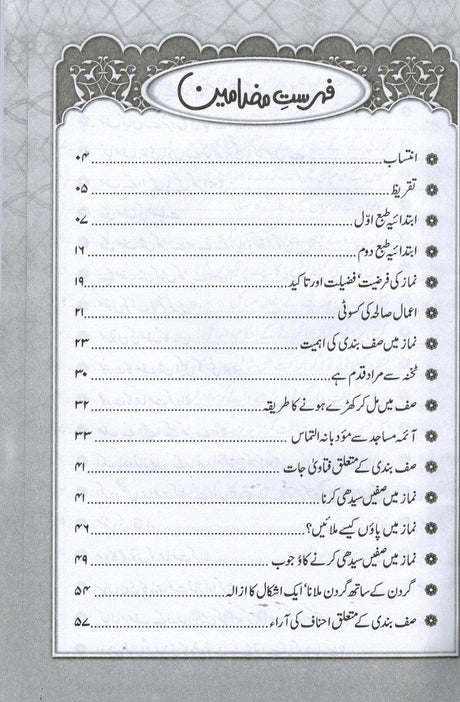 فہرستِ مضامین
انتساب ........ ۰۴
تقریظ ........ ۰۵
ابتدائیہ طبع اوّل ........ ۰۷
ابتدائیہ طبع دوم ........ ۱۶
نماز کی فرضیت، فضیلت اور تاکید ........ ۱۹
اعمال صالحہ کی کسوٹی ........ ۲۱
نماز میں صف بندی کی اہمیت ........ ۲۳
ٹخنہ سے مراد قدم ہے ........ ۳۰
صف میں مل کر کھڑے ہونے کا طریقہ ........ ۳۲
آئمہ مساجد سے مؤدبانہ التماس ........ ۳۳
صف بندی کے متعلق فتاویٰ جات ........ ۴۱
نماز میں صفیں سیدھی کرنا ........ ۴۱
نماز میں پاؤں کیسے ملائیں؟ ........ ۴۶
نماز میں صفیں سیدھی کرنے کا وجوب ........ ۴۹
گردن کے ساتھ گردن ملانا، ایک اشکال کا ازالہ ........ ۵۴
صف بندی کے متعلق احناف کی آراء ........ ۵۷